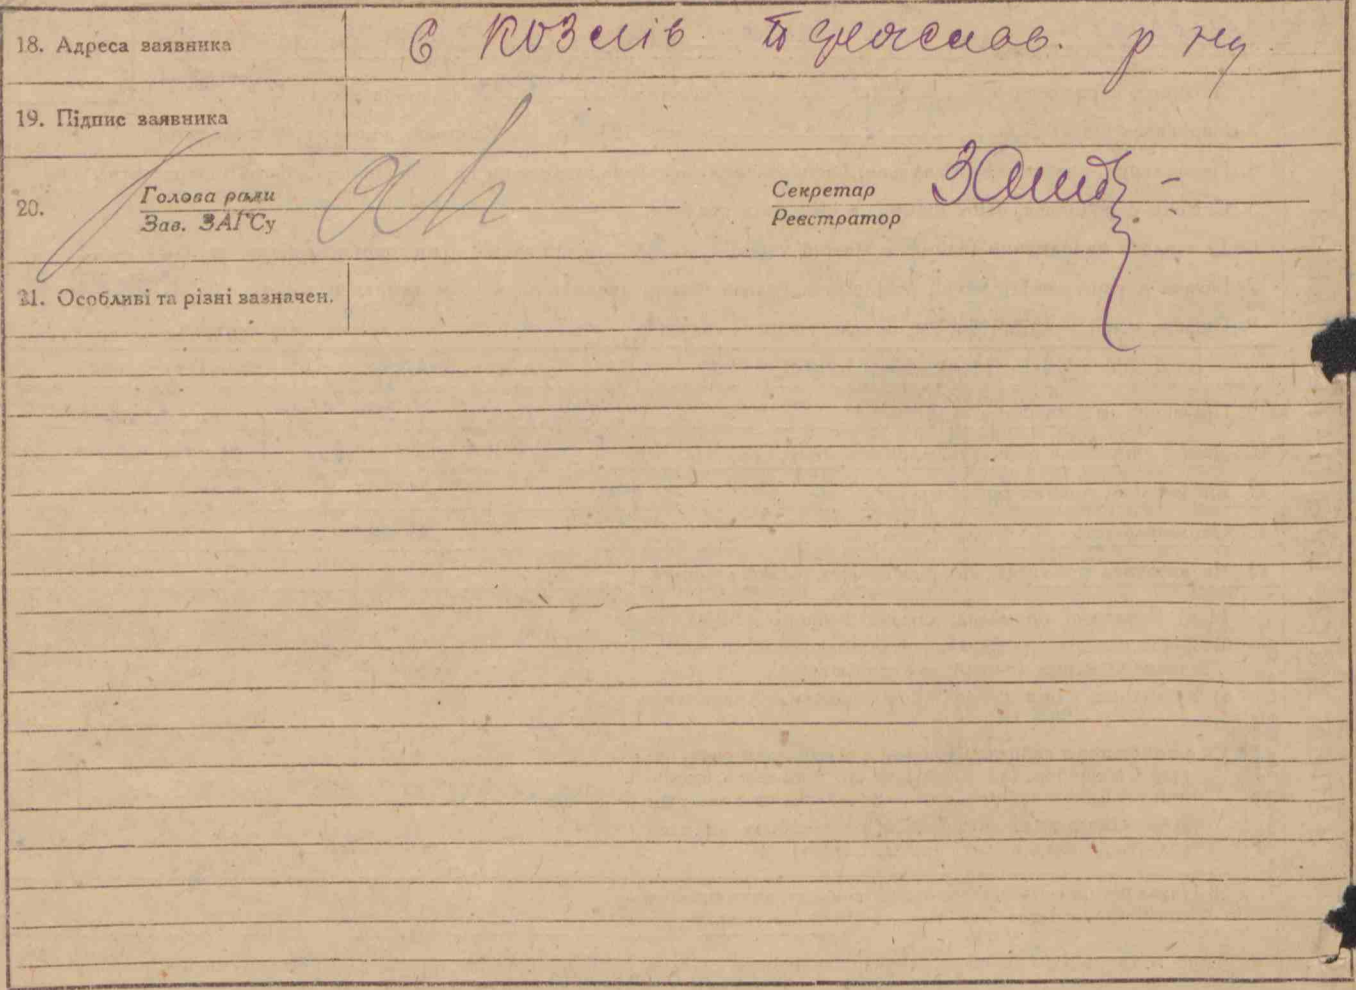 18. Адреса заявника с Козлів Переяслав. р ну
19. Підпис заявника
20. Голова ради
Зав. ЗАГСу
Секретар
Реєстратор
21. Особливі та різні зазначен.